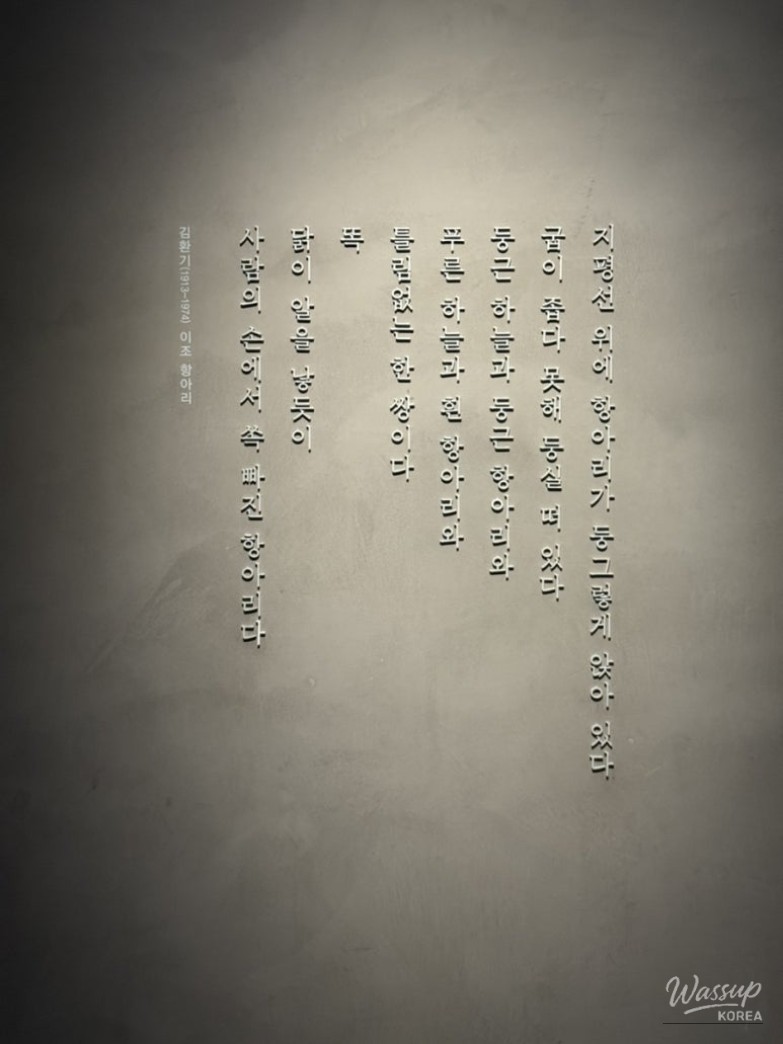 지평선 위에 항아리가 둥그렇게 앉아 있다
굽이 좁다 못해 둥실 떠 있다
둥근 하늘과 둥근 항아리와
푸른 하늘과 흰 항아리와
틀림없는 한 쌍이다
똑
닭이 알을 낳듯이
사람의 손에서 쏙 빠진 항아리다
김환기(1913-1974) 이조 항아리
Wassup
KOREA